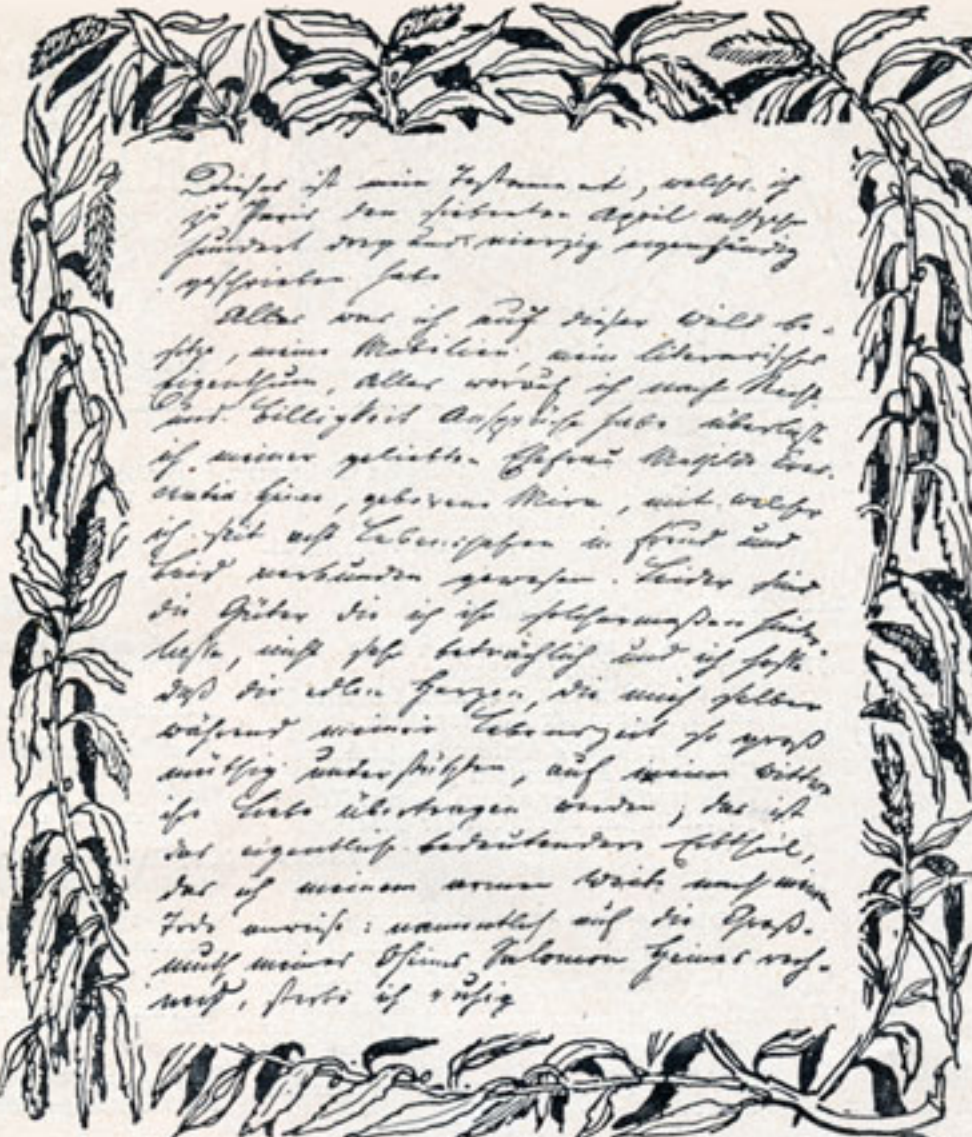 Dieses ist mein Testament, welches ich
zu Paris den siebenten April achtzehn
hundert drey und vierzig eigenhändig
geschrieben habe
Alles was ich auf dieser Welt be-
sitze, meine Mobilien, mein literarisches
Eigenthum, Alles worauf ich nach Recht
und Billigkeit Ansprüche habe überlasse
ich meiner geliebten Ehefrau Mathilde Cres-
centia Heine, geborene Mira, mit welcher
ich seit acht Lebensjahren in Freud und
Leid verbunden gewesen. Leider sind
die Güter die ich ihr solchermaßen hinter-
lasse, nicht sehr beträchtlich und ich hoffe
daß die edlen Herzen, die mich selber
während meiner Lebenszeit so groß
müthig unterstützten, auf meine Wittwe
ihre Liebe übertragen werden; das ist
das eigentlich bedeutendere Erbtheil,
das ich meinem armen Weibe nach meinem
Tode anweise: namentlich auf die Groß-
muth meines Oheims Salomon Heines rech-
nend, sterbe ich ruhig